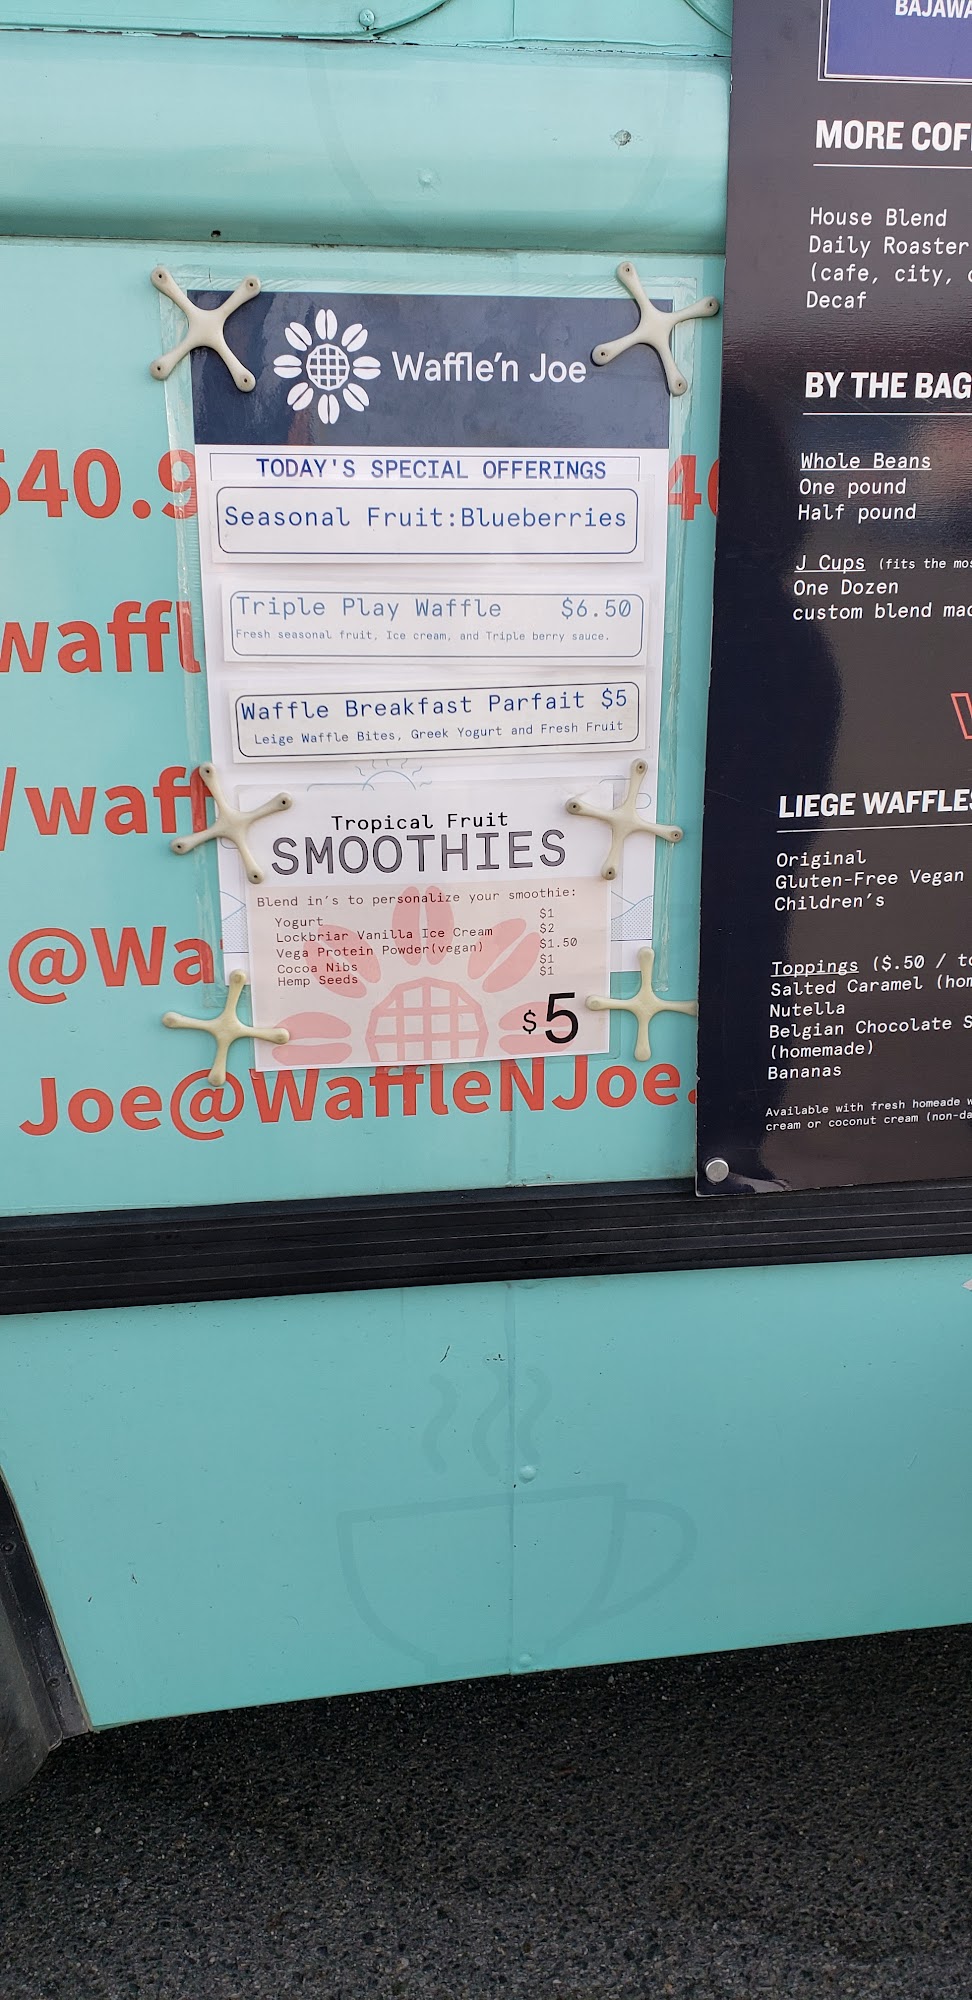 Waffle'n Joe
TODAY'S SPECIAL OFFERINGS
Seasonal Fruit:Blueberries
Triple Play Waffle $6.50
Fresh seasonal fruit, Ice cream, and Triple berry sauce.
Waffle Breakfast Parfait $5
Leige Waffle Bites, Greek Yogurt and Fresh Fruit
Tropical Fruit
SMOOTHIES
Blend in's to personalize your smoothie:
Yogurt $1
Lockbriar Vanilla Ice Cream $2
Vega Protein Powder(vegan) $1.50
Cocoa Nibs $1
Hemp Seeds $1
$5
540.9
waffl
/waff
@Wa
Joe@WaffleNJoe.
BAJAWA
MORE COF
House Blend
Daily Roaster
(cafe, city,
Decaf
BY THE BAG
Whole Beans
One pound
Half pound
J Cups (fits the mos
One Dozen
custom blend mad
LIEGE WAFFLES
Original
Gluten-Free Vegan
Children's
Toppings ($.50 / to
Salted Caramel (hom
Nutella
Belgian Chocolate S
(homemade)
Bananas
Available with fresh homeade w
cream or coconut cream (non-da